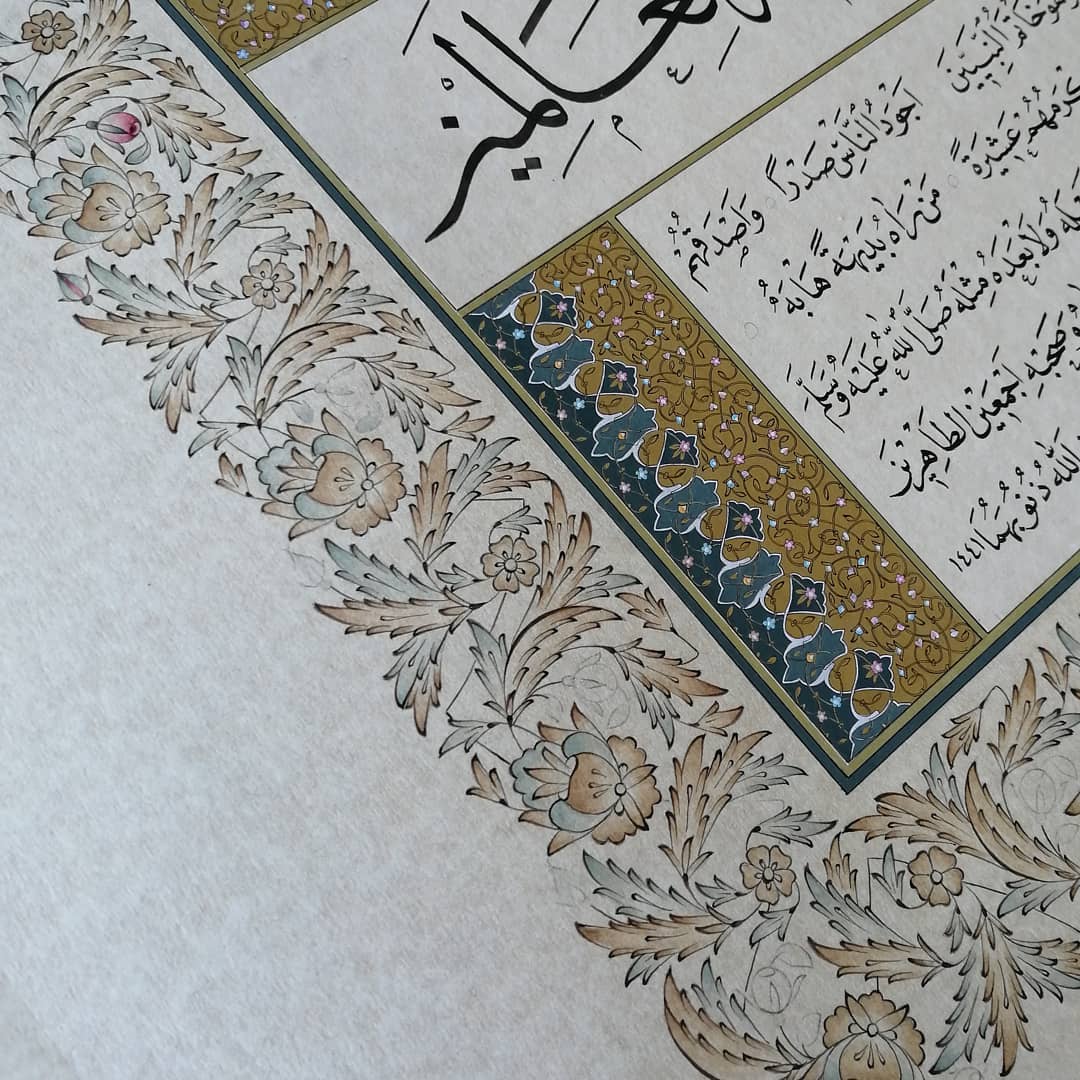 للعالمين
وهو خاتم النبيين
أَجْوَدُ النَّاسِ صَدْرًا وَأَصْدَقُهُمْ
أكرمهم عشيرة
مَنْ رَآهُ بَدِيهَةً هَابَهُ
قبله وَلَا بَعْدَهُ مِثْلَهُ صَلَّى اللهُ عَلَيْهِ وَسَلَّمَ
وصحبه أجمعين الطاهرين
الله ذنوبهما ١٤٤١